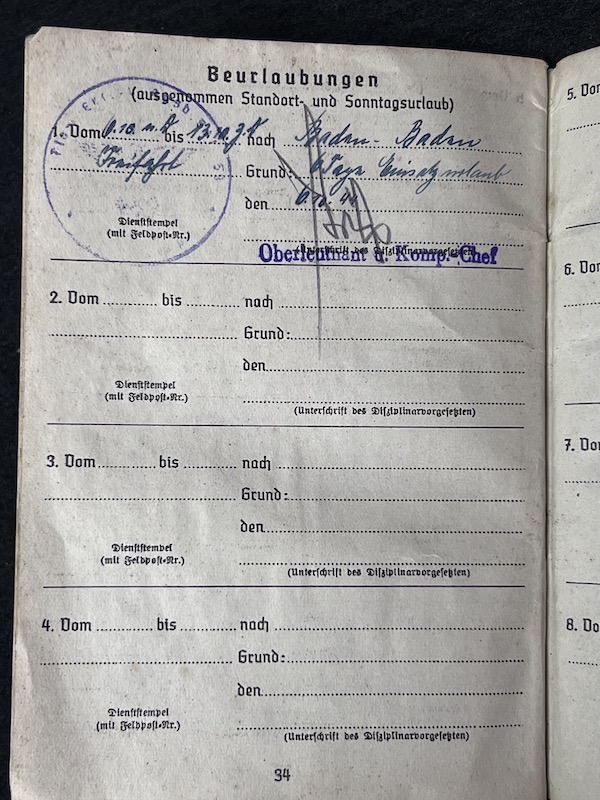 Beurlaubungen
(ausgenommen Standort- und Sonntagsurlaub)
1. Vom bis nach Baden-Baden
Freifahrt Grund: 6 Tage Einsatzurlaub
den
Dienststempel
(mit Feldpost-Nr.)
(Unterschrift des Disziplinarvorgesetzten)
Oberleutnant u. Komp.-Chef
2. Vom bis nach
Grund:
den
Dienststempel
(mit Feldpost-Nr.)
(Unterschrift des Disziplinarvorgesetzten)
3. Vom bis nach
Grund:
den
Dienststempel
(mit Feldpost-Nr.)
(Unterschrift des Disziplinarvorgesetzten)
4. Vom bis nach
Grund:
den
Dienststempel
(mit Feldpost-Nr.)
(Unterschrift des Disziplinarvorgesetzten)
34
5.
6.
7.
8.